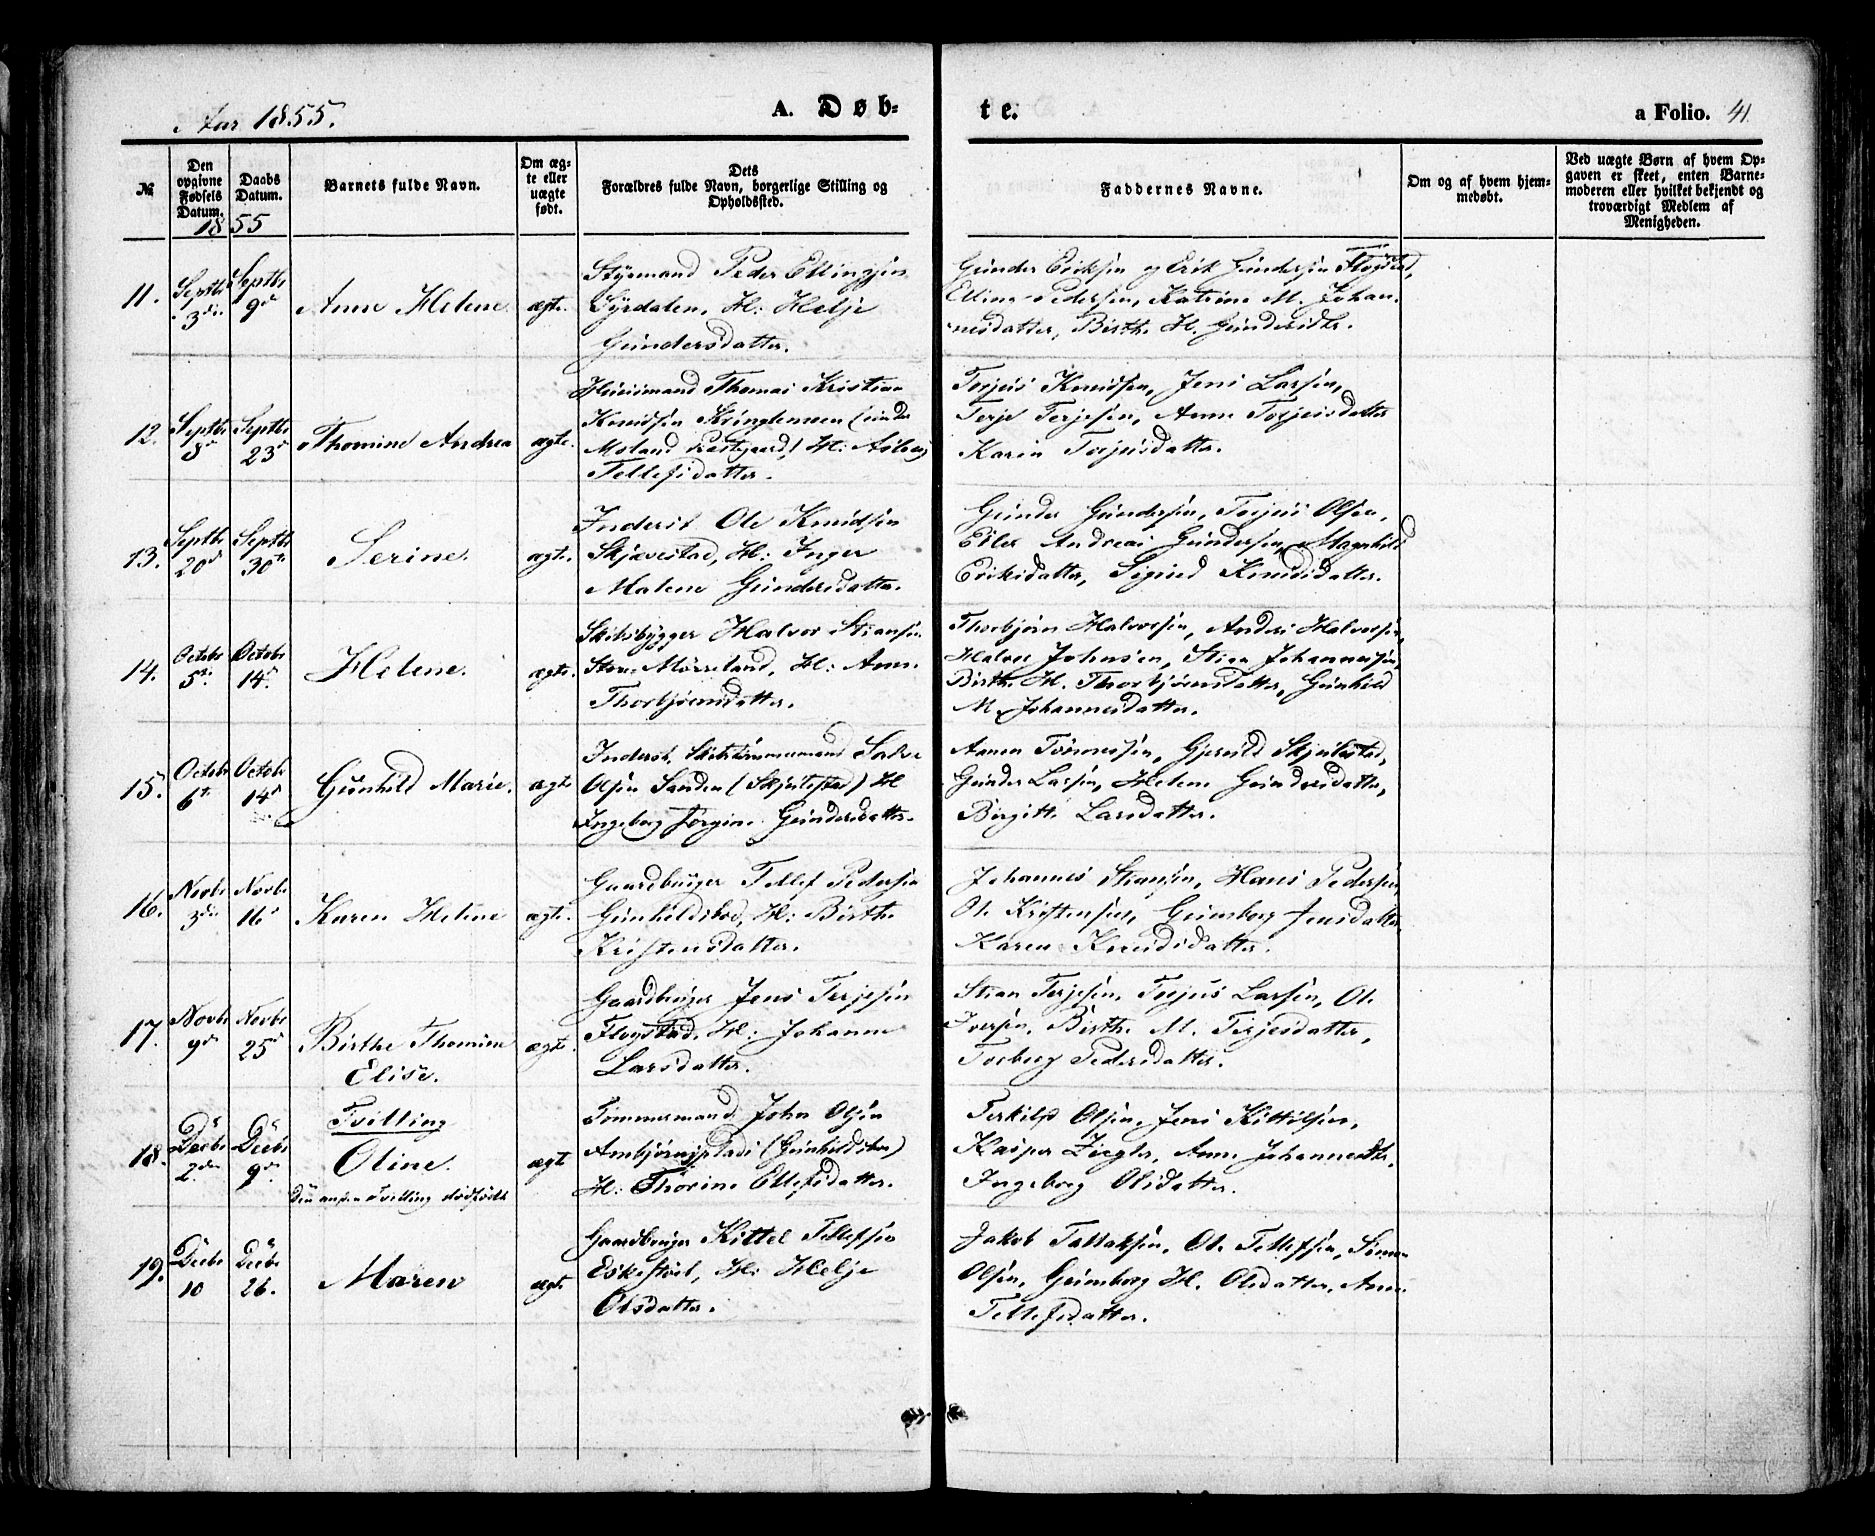 Aar 1855.
A. Døb-
te.
a Folio. 41
№
Den opgivne Fødsels Datum.
Daabs Datum.
1855
Barnets fulde Navn.
Om ægte eller uægte født.
Dets
Forældres fulde Navn, borgerlige Stilling og
Opholdssted.
Faddernes Navne.
Om og af hvem hjemmedøbt.
Ved uægte Børn af hvem Op-
gaven er skeet, enten Barne-
moderen eller hvilket bekjendt og
troværdigt Medlem af
Menigheden.
11. Septbr 3die Septbr 9d Anne Helene ægte.
Styrmand Peder Ellingsen
Syrdalen, H: Helje
Gundersdatter.
Gunder Eriksen og Erik Gundersen Flogstad,
Elling Pedersen, Katrine M. Johan-
nesdatter, Birthe H. Gundersdtr.
12. Septbr 8d Septbr 23d Thomine Andrea ægte.
Huusmand Thomas Kristian
Knudsen (under
Moland Præstgaard) H: Aslaug
Tellefsdatter.
Torjus Knudsen, Jens Larsen,
Terje Terjesen, Anne Torjusdatter
Karen Torjusdatter.
13. Septbr 20d Septbr 30te Serine. ægte.
Inderst Ole Knudsen
Skjævestad, H: Inger
Malene Gundersdatter.
Gunder Gundersen, Torjus Olsen,
Andreas Gundersen, Magnhild
Eriksdatter, Sigrid Knudsdatter.
14. Octobr 5te Octobr 14d Helene. ægte.
Skibsbygger Halvor Stiansen
Store Mørreland, H: Anne
Thorbjørnsdatter.
Thorbjørn Halvorsen, Anders Halvorsen,
Halvor Johnsen, Stian Johannessen,
Birthe M. Thorbjørnsdatter, Gunhild
M. Johannesdatter.
15. Octobr 6te Octobr 14d Gunhild Marie. ægte
Inderst, Skibstømmermand Salve
Olsen Sanden (Skjulestad) H:
Ingeborg Jørgine Gundersdatter.
Aanen Tønnessen, Gjeruld Skjulestad,
Gunder Larsen, Helene Gundersdatter,
Birgitte Larsdatter.
16. Novbr 3die Novbr 16d Karen Helene ægte.
Gaardbruger Tellef Pedersen
Gunhildsbod, H: Birthe
Kristensdatter.
Johannes Stiansen, Hans Pedersen,
Ole Kristensen, Gunborg Jensdatter
Karen Knudsdatter.
17. Novbr 9de Novbr 25d Birthe Thomine
Elise. ægte.
Gaardbruger Jens Terjesen
Flogstad. H: Johanne
Larsdatter.
Stian Terjesen, Torjus Larsen, Ole
Iversen, Birthe M. Terjesdatter,
Torborg Pedersdatter.
18. Decbr 2den Decbr 9de Tvilling
Oline. ægte
Den anden Tvilling dødfødt
Tømmermand John Olsen
Ambjørnsplads (Gunhildsbod)
H: Thorine Ellefsdatter.
Terkild Olsen, Jens Kittilsen,
Kasper Ziegler, Anne Johannesdtr,
Ingeborg Olsdatter.
19. Decbr 10 Decbr 26. Maren ægte
Gaardbruger Kittel Tellefsen
Eskestøel, H: Helje
Olsdatter.
Jakob Tallaksen, Ole Tellefsen, Simon
Olsen, Gunborg H. Olsdatter, Anne
Tellefsdatter.